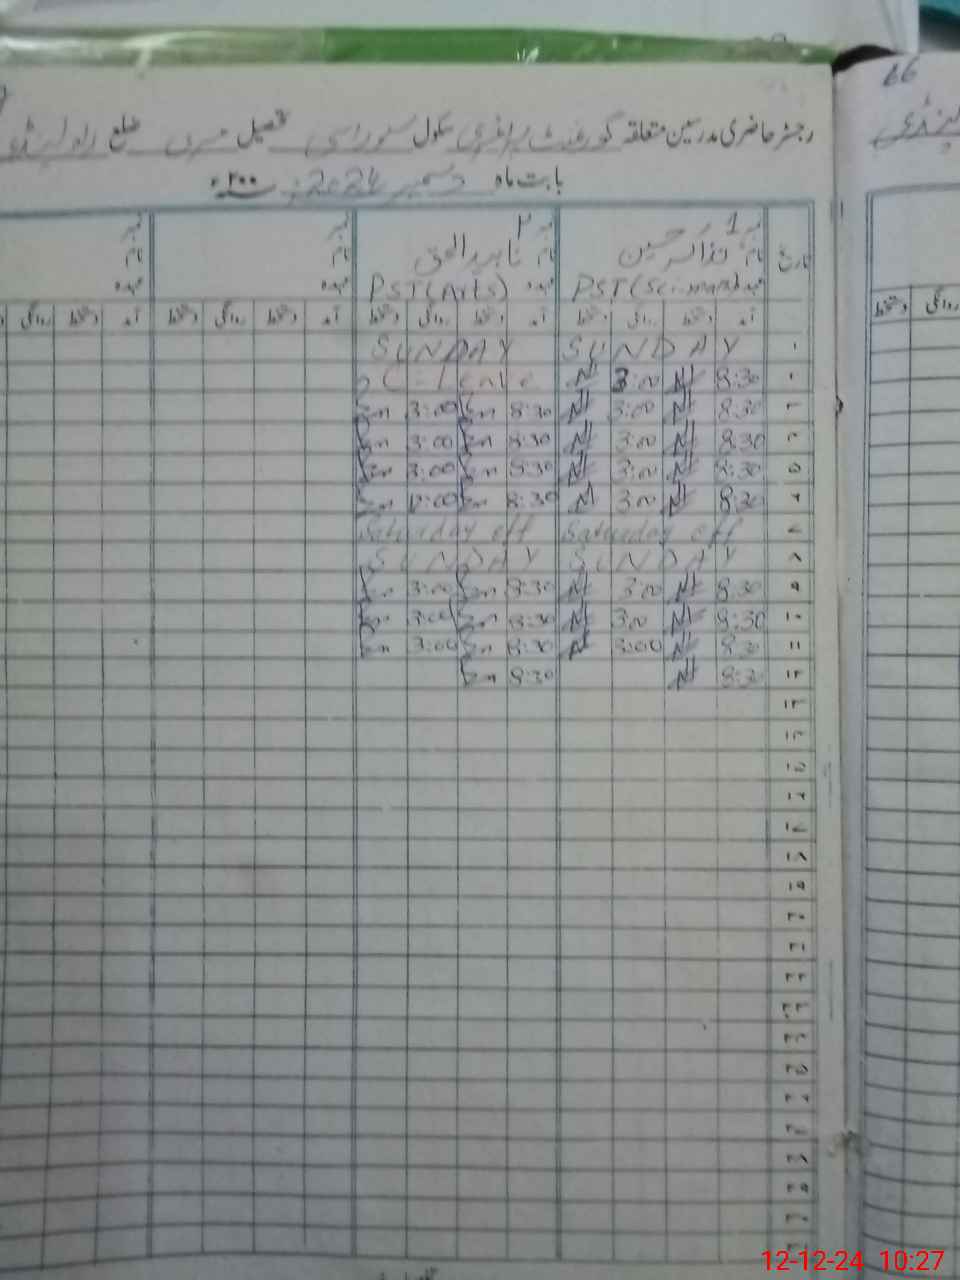 66
رجسٹر حاضری مدرسین متعلقہ گورنمنٹ پرائمری سکول تحصیل مری ضلع راولپنڈی
بابت ماہ دسمبر 2024ء ۲۰۰ء
تاریخ نمبر 1 نمبر ۲ نمبر نمبر
نام ذاکر حسین نام ناہید الحق نام نام
عہدہ PST(Sci-math) عہدہ PST(Arts) عہدہ عہدہ
آمد دستخط روانگی دستخط آمد دستخط روانگی دستخط آمد دستخط روانگی دستخط آمد دستخط روانگی
۱ SUNDAY SUNDAY
۲ 8:30 3:00 C-leave
۳ 8:30 3:00 8:30 3:00
۴ 8:30 3:00 8:30 3:00
۵ 8:30 3:00 8:30 3:00
۶ 8:30 3:00 8:30 12:00
۷ Saturday off Saturday off
۸ SUNDAY SUNDAY
۹ 8:30 3:00 8:30 3:00
۱۰ 8:30 3:00 8:30 3:00
۱۱ 8:30 3:00 8:30 3:00
۱۲ 8:30 8:30
۱۳
۱۴
۱۵
۱۶
۱۷
۱۸
۱۹
۲۰
۲۱
۲۲
۲۳
۲۴
۲۵
۲۶
۲۷
۲۸
۲۹
۳۰
۳۱
دستخط روانگی
12-12-24 10:27